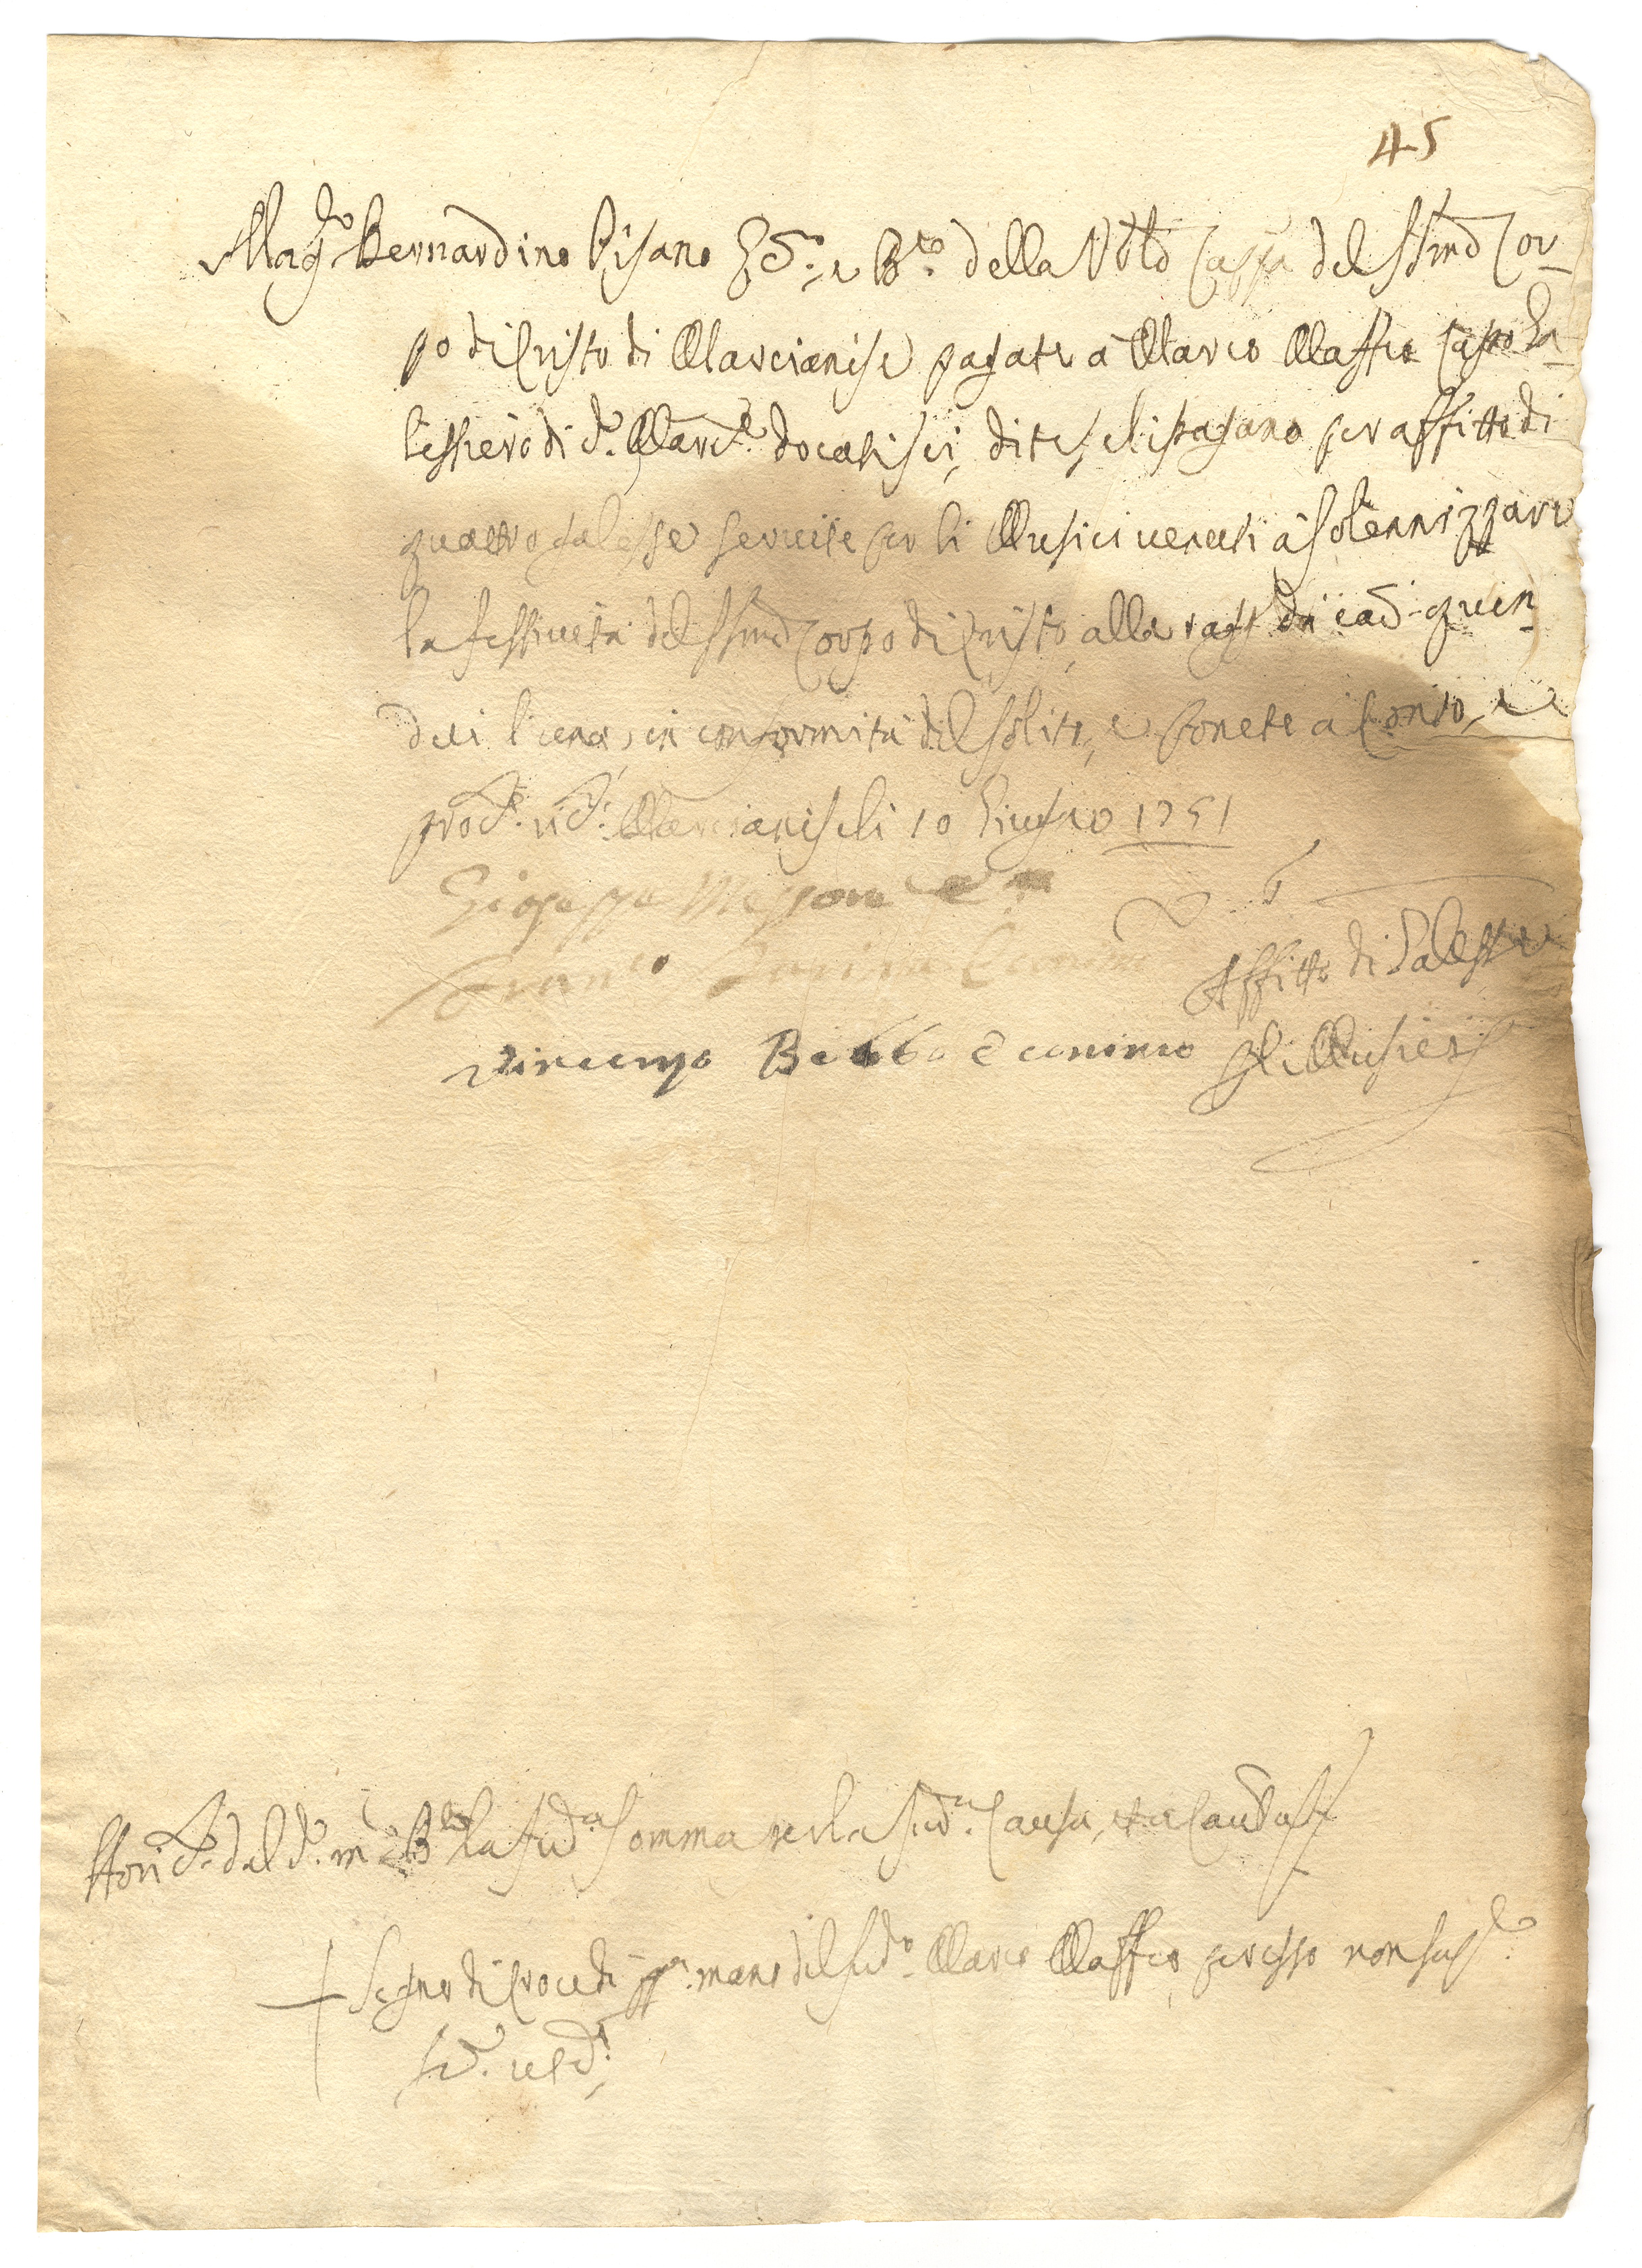 45
Mag.co Bernardino Pisano Ec.o, e B.ro della Ven.le Cappa del SSmo Cor-
po di Cristo di Marcianise pagate à Marco Maffeo Capo Ga-
lessiero di d.a Marc.e docati sei, dite, se li pagano per affitto di
quattro galesse servite per li Musici venuti à solennizzare
la festività del SSmo Corpo di Cristo, alla rag.e di car.ni quin-
deci l'una, in conformità del solito, e ponete a Conto, e
Marcianise li 10 Giugno 1751
Giuseppe Messore
Fran.co
6
Affitto di Galesse
Vincenzo Bobbo Economo
p li Musici
Ho ric.to dal d.o m.co B.ro la sud.a somma per la sud.a Causa, et a Cautela
+ Segno di Croce di pp.a mano del sud.o Marco Maffeo, per esso non sap.re